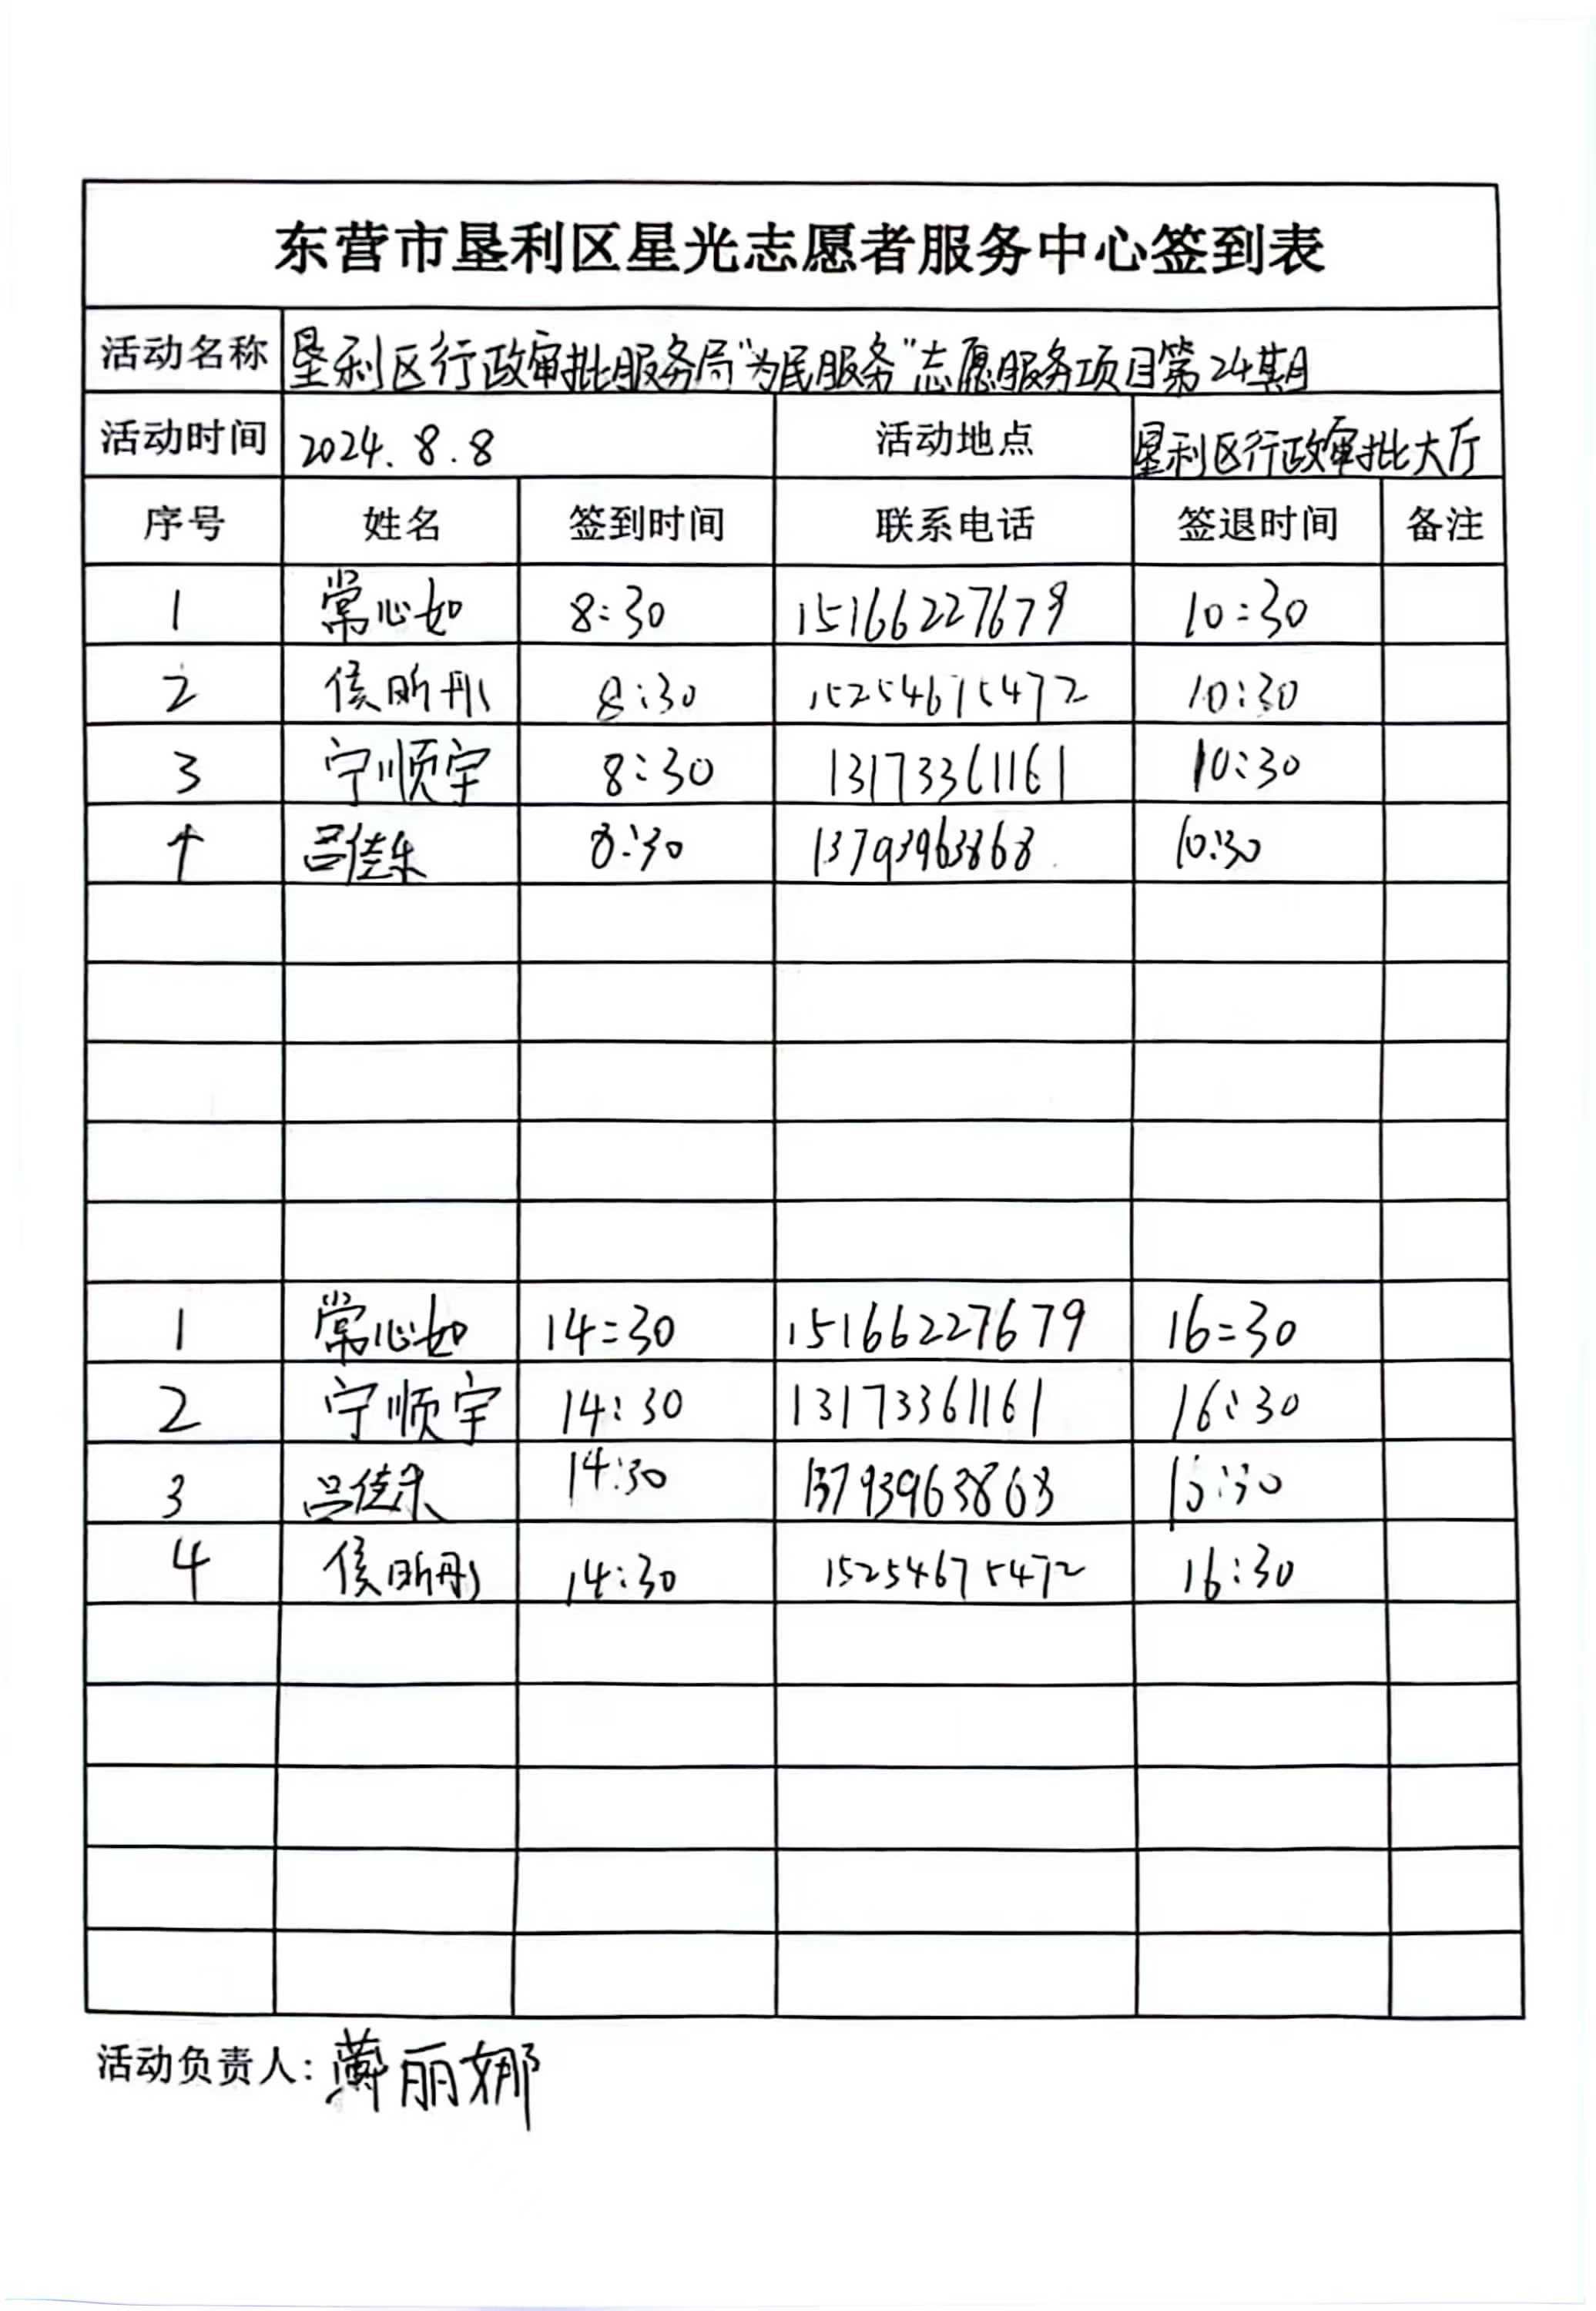 东营市垦利区星光志愿者服务中心签到表
活动名称 垦利区行政审批服务局“为民服务”志愿服务项目第24期
活动时间 2024.8.8 活动地点 垦利区行政审批大厅
序号 姓名 签到时间 联系电话 签退时间 备注
1 常心如 8:30 15166227679 10:30
2 侯昕彤 8:30 15254675472 10:30
3 宁顺宇 8:30 13173361161 10:30
4 吕佳乐 8:30 13793963868 10:30
1 常心如 14:30 15166227679 16:30
2 宁顺宇 14:30 13173361161 16:30
3 吕佳乐 14:30 13793963868 16:30
4 侯昕彤 14:30 15254675472 16:30
活动负责人:薄丽娜